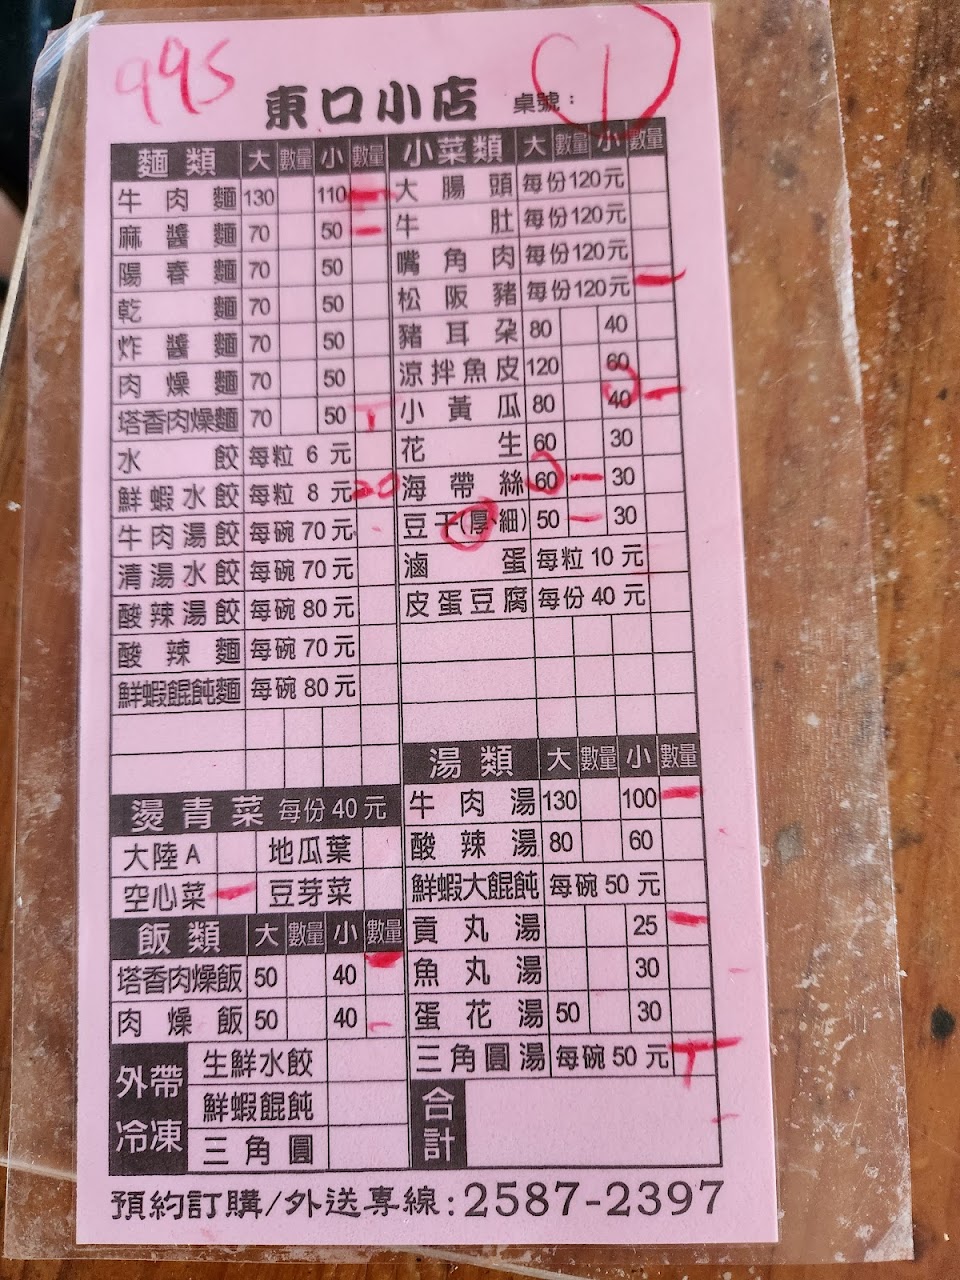 995
1
東口小店 桌號：
麵類 大 數量 小 數量
牛肉麵 130 110
麻醬麵 70 50
陽春麵 70 50
乾麵 70 50
炸醬麵 70 50
肉燥麵 70 50
塔香肉燥麵 70 50
水餃 每粒 6 元
鮮蝦水餃 每粒 8 元 20
牛肉湯餃 每碗 70 元
清湯水餃 每碗 70 元
酸辣湯餃 每碗 80 元
酸辣麵 每碗 70 元
鮮蝦餛飩麵 每碗 80 元
燙青菜 每份 40 元
大陸A 地瓜葉
空心菜 豆芽菜
飯類 大 數量 小 數量
塔香肉燥飯 50 40
肉燥飯 50 40
外帶冷凍
生鮮水餃
鮮蝦餛飩
三角圓
小菜類 大 數量 小 數量
大腸頭 每份120元
牛肚 每份120元
嘴角肉 每份120元
松阪豬 每份120元
豬耳朵 80 40
涼拌魚皮 120 60
小黃瓜 80 40
花生 60 30
海帶絲 60 30
豆干(厚、細) 50 30
滷蛋 每粒 10 元
皮蛋豆腐 每份 40 元
湯類 大 數量 小 數量
牛肉湯 130 100
酸辣湯 80 60
鮮蝦大餛飩 每碗 50 元
貢丸湯 25
魚丸湯 30
蛋花湯 50 30
三角圓湯 每碗 50 元
合計
預約訂購/外送專線:2587-2397